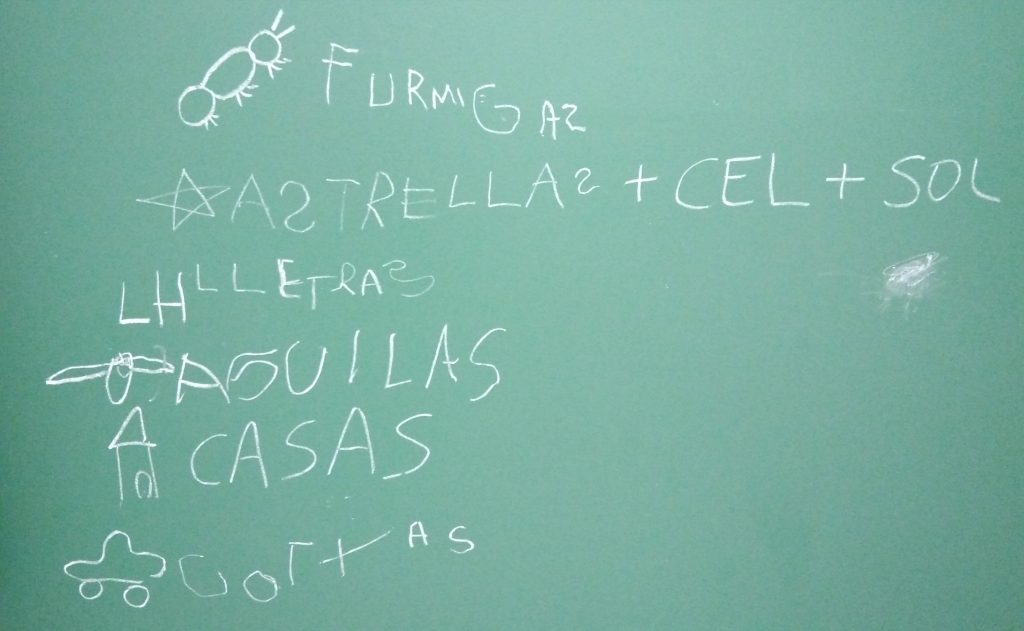 FURMIGAS
ASTRELLAS + CEL + SOL
LH LLETRAS
AGUILAS
CASAS